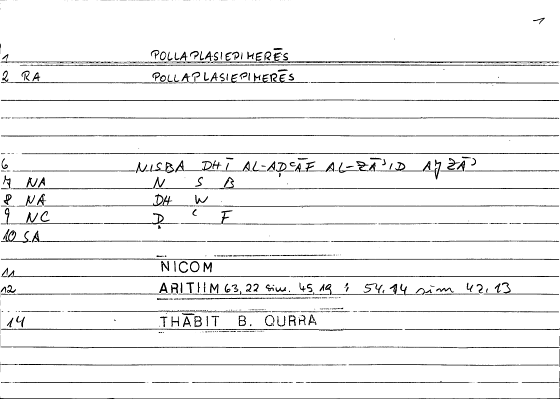 1
1 POLLAPLASIEPIMERĒS
2 RA POLLAPLASIEPIMERĒS
6 NISBA DHĪ AL-AḌʿĀF AL-ZĀʾID AJZĀʾ
7 NA N S B
8 NA DH W
9 NC Ḍ ʿ F
10 SA
11 NICOM
12 ARITHM 63,22 sim. 45,19 : 54,14 sim 42,13
14 THĀBIT B. QURRA